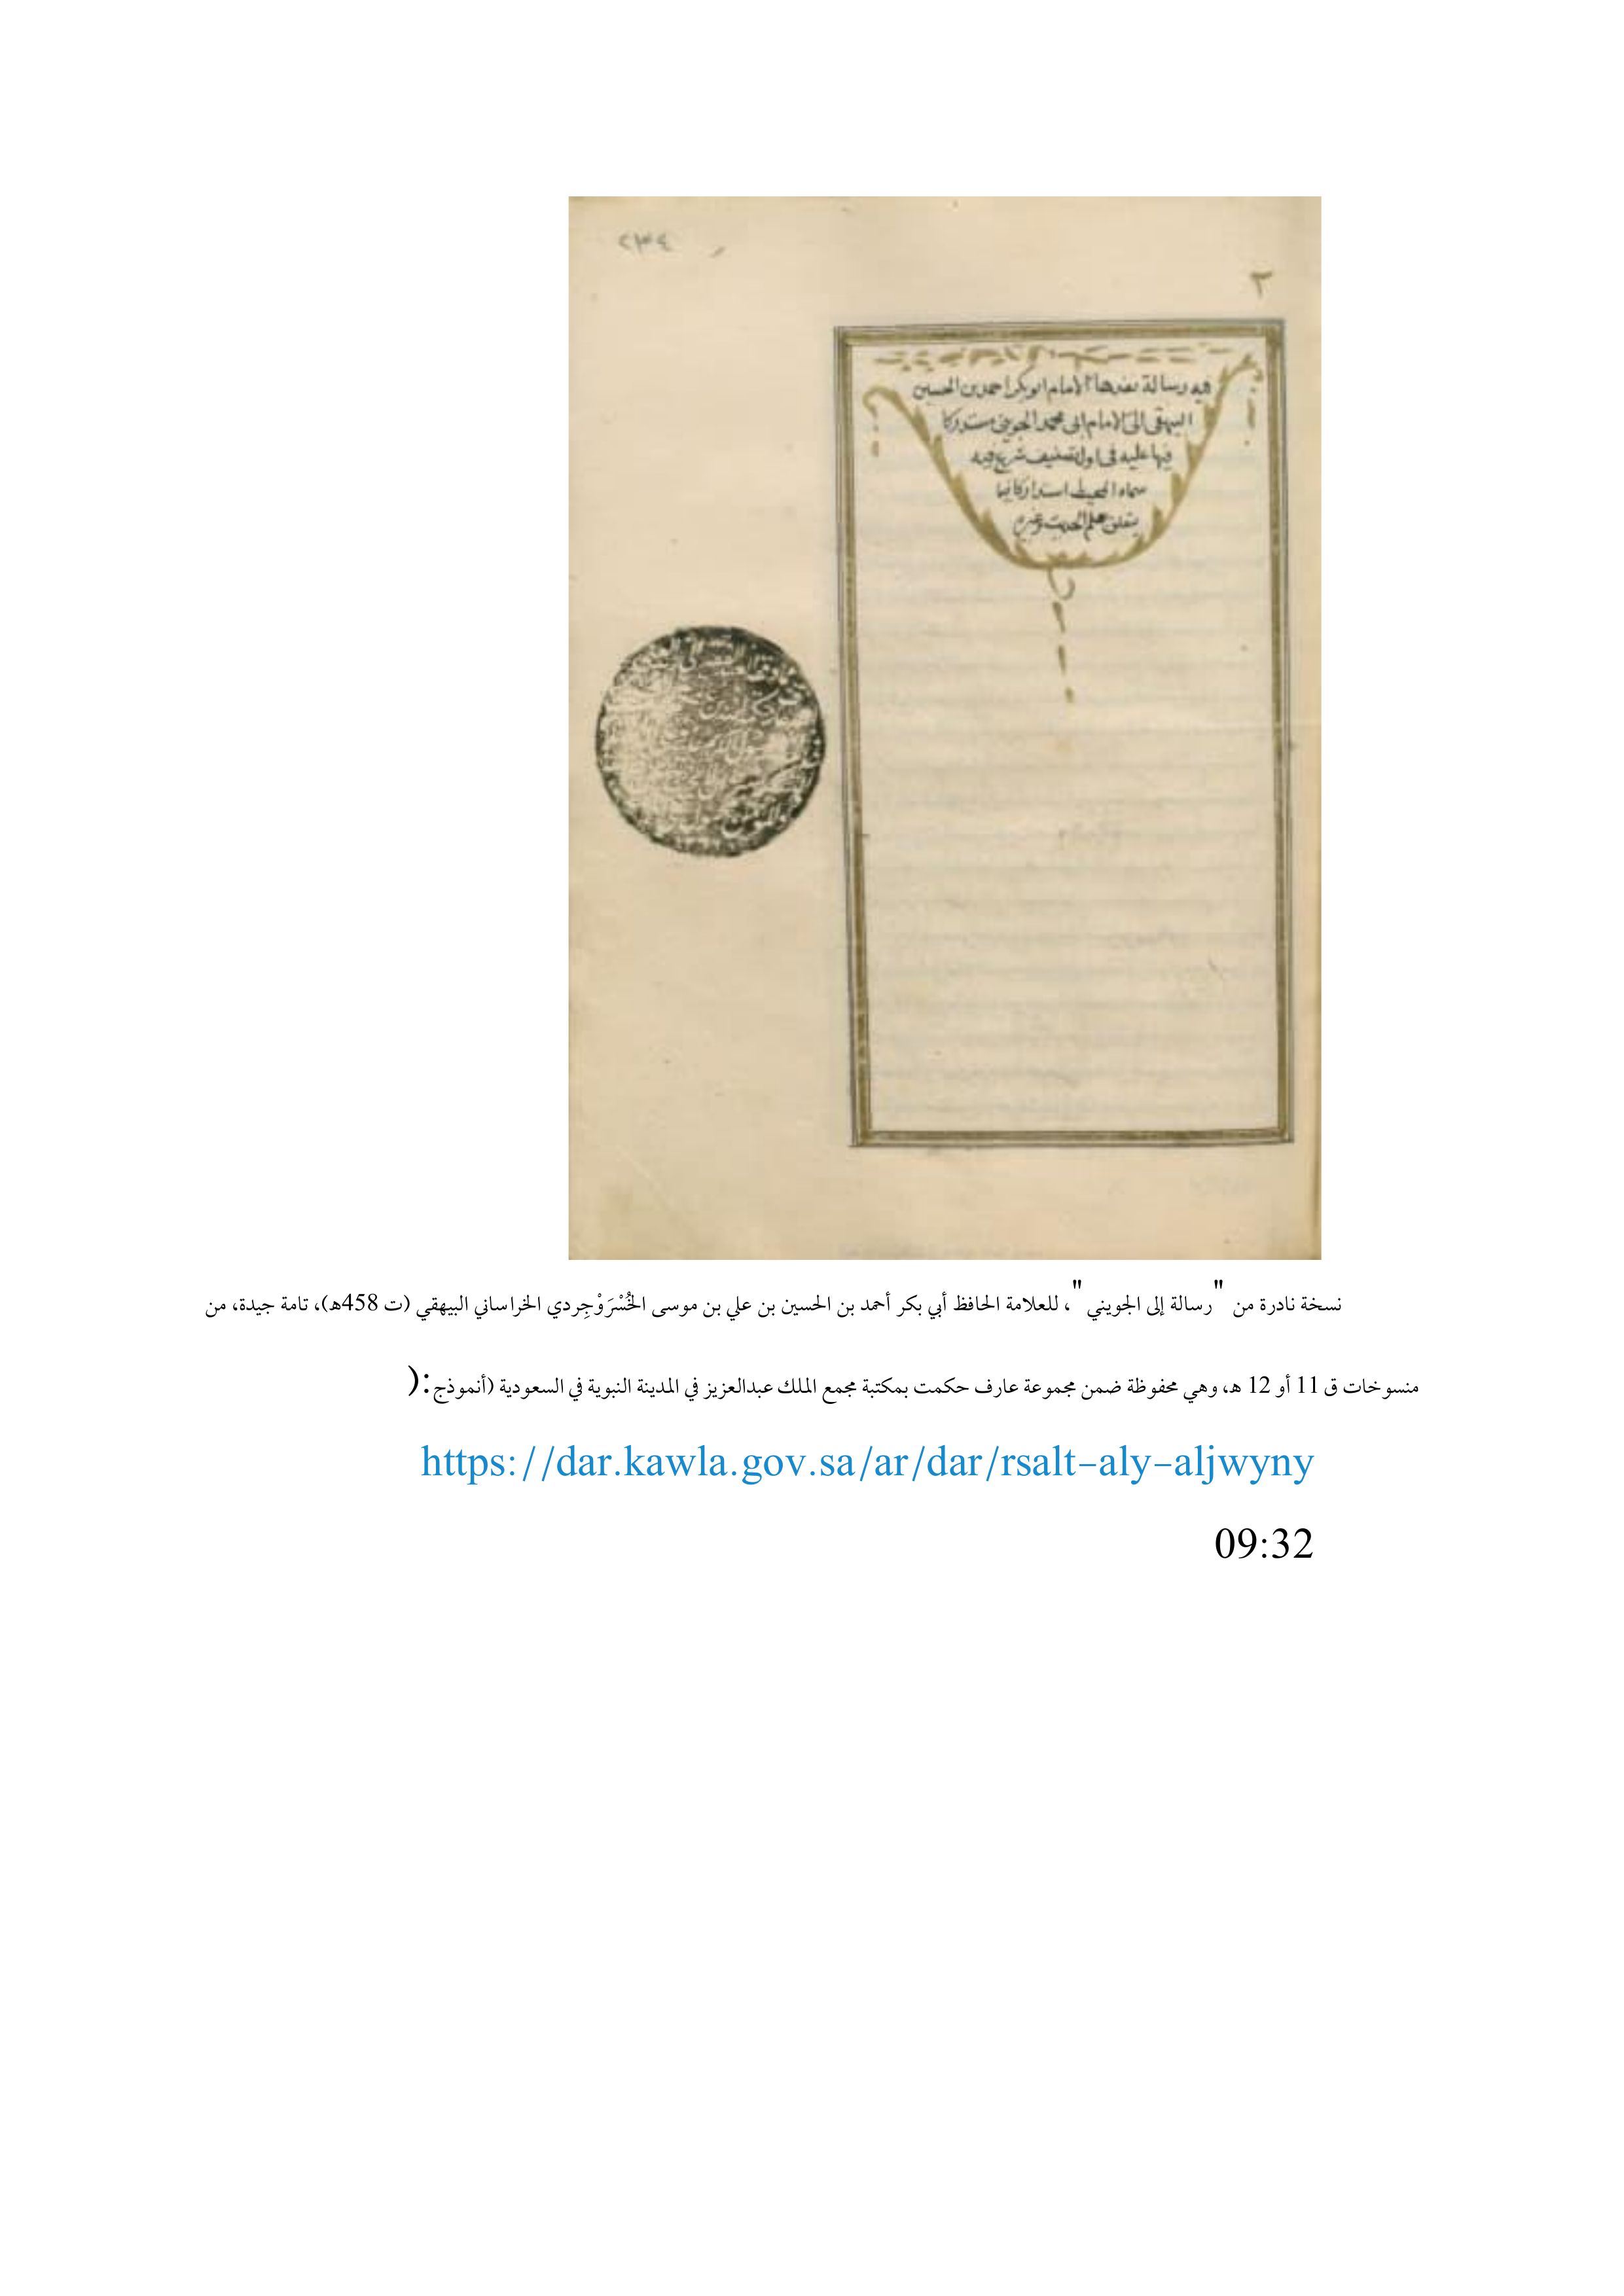 ٢٣٤
٣
فيه رسالة بعدها الامام ابوبكر احمد بن الحسين
البيهقى الى الامام ابى محمد الجوينى مستدركا
فيها عليه فى اول تصنيف شرع فيه
سماه المحيط استدراكا فيما
يتعلق بعلم الحديث وغيره
نسخة نادرة من "رسالة إلى الجويني"، للعلامة الحافظ أبي بكر أحمد بن الحسين بن علي بن موسى الخُسْرَوْجِردي الخراساني البيهقي (ت 458هـ)، تامة جيدة، من
منسوخات ق 11 أو 12 هـ، وهي محفوظة ضمن مجموعة عارف حكمت بمكتبة مجمع الملك عبدالعزيز في المدينة النبوية في السعودية (أنموذج:(
https://dar.kawla.gov.sa/ar/dar/rsalt-aly-aljwyny
09:32